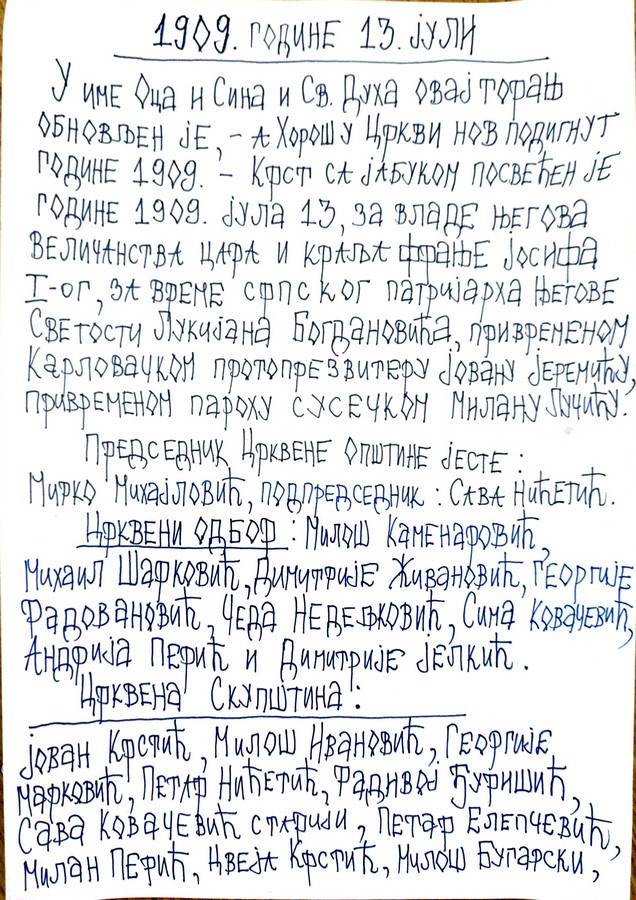 1909. ГОДИНЕ 13. ЈУЛИ
У ИМЕ ОЦА И СИНА И СВ. ДУХА ОВАЈ ТОРАЊ
ОБНОВЉЕН ЈЕ, – А ХОРОШ У ЦРКВИ НОВ ПОДИГНУТ
ГОДИНЕ 1909. – КРСТ СА ЈАБУКОМ ПОСВЕЋЕН ЈЕ
ГОДИНЕ 1909. ЈУЛА 13, ЗА ВЛАДЕ ЊЕГОВА
ВЕЛИЧАНСТВА ЦАРА И КРАЉА ФРАЊЕ ЈОСИФА
I-ОГ, ЗА ВРЕМЕ СРПСКОГ ПАТРИЈАРХА ЊЕГОВЕ
СВЕТОСТИ ЛУКИЈАНА БОГДАНОВИЋА, ПРИВРЕМЕНОМ
КАРЛОВАЧКОМ ПРОТОПРЕЗВИТЕРУ ЈОВАНУ ЈЕРЕМИЋУ,
ПРИВРЕМЕНОМ ПАРОХУ СУСЕЧКОМ МИЛАНУ ЛУЧИЋУ.
ПРЕДСЕДНИК ЦРКВЕНЕ ОПШТИНЕ ЈЕСТЕ:
МИРКО МИХАЈЛОВИЋ, ПОДПРЕДСЕДНИК: САВА НИЋЕТИЋ.
ЦРКВЕНИ ОДБОР: МИЛОШ КАМЕНАРОВИЋ,
МИХАИЛ ШАРКОВИЋ, ДИМИТРИЈЕ ЖИВАНОВИЋ, ГЕОРГИЈЕ
РАДОВАНОВИЋ, ЧЕДА НЕДЕЉКОВИЋ, СИМА КОВАЧЕВИЋ,
АНДРИЈА ПЕРИЋ И ДИМИТРИЈЕ ЈЕЛКИЋ.
ЦРКВЕНА СКУПШТИНА:
ЈОВАН КРСТИЋ, МИЛОШ ИВАНОВИЋ, ГЕОРГИЈЕ
МАРКОВИЋ, ПЕТАР НИЋЕТИЋ, РАДИВОЈ ЂУРИШИЋ,
САВА КОВАЧЕВИЋ СТАРИЈИ, ПЕТАР ЕЛЕПЧЕВИЋ,
МИЛАН ПЕРИЋ, ЦВЕЈА КРСТИЋ, МИЛОШ БУГАРСКИ,